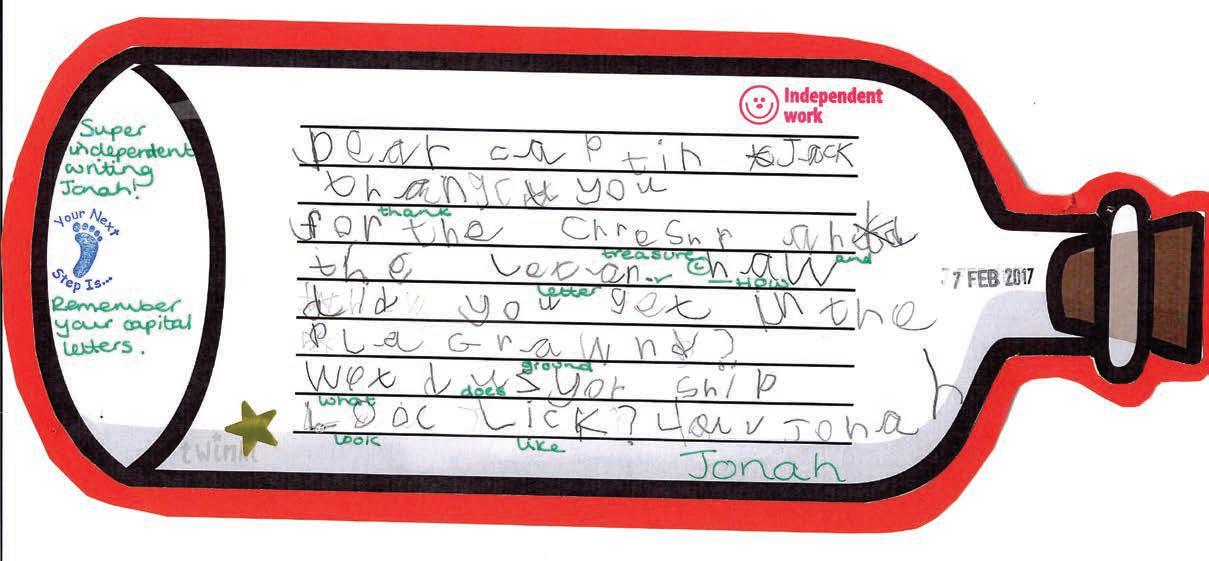 Independent
work
Super
independent
writing
Jonah!
Your Next
Step is...
Remember
your capital
letters.
Dear captin Jack
you
thank
for the Chresur and
treasure and
the leter haw
letter How
did you get in the
PLaGrawnd?
ground
Wot dus yor ship
what does
Looc Lick? Your Jonah
look like
Jonah
7 FEB 2017
twinkl